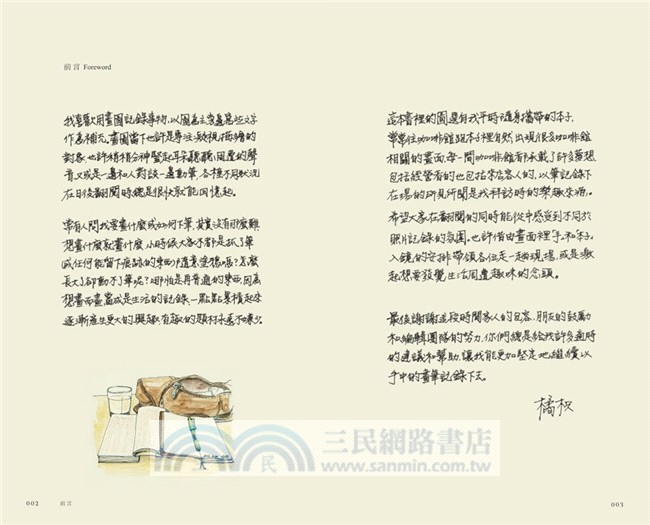 前言 Foreword
我喜歡用畫圖記錄事物，以圖為主旁邊寫些文字
作為補充。畫圖當下也許是專注凝視描繪的
對象，也許稍稍分神豎起耳朵聽聽周遭的聲
音又或是一邊和人對談一邊動筆，各種不同狀況
在日後翻閱時總是很快就能回憶起。
常有人問我要畫什麼或如何下筆，其實沒有那麼難
想畫什麼就畫什麼，小時候大家不都是抓了筆
或任何能留下痕跡的東西，隨意塗抹嗎？怎麼
長大了卻動不了筆呢？哪怕是再普通的東西，因為
想畫而畫當成是生活的記錄，一點點累積起來
逐漸產生更大的興趣，有趣的題材永遠不嫌少。
這本書裡的圖選自我平時隨身攜帶的本子，
常常往咖啡館跑本子裡自然出現很多咖啡館
相關的畫面，每一間咖啡館都承載了許多夢想
包括經營者的也包括來店客人的，以筆記錄下
在場的所見所聞是我拜訪時的樂趣來源。
希望大家在翻閱的同時能從中感受到不同於
照片記錄的氛圍，也許借由畫面裡手和本子
入鏡的安排帶領各位走一趟現場，或是激
起想要發覺生活周遭趣味的念頭。
最後謝謝這段時間家人的包容、朋友的鼓勵
和編輯團隊的努力，你們總是給我許多適時
的建議和幫助，讓我能更加堅定地繼續以
手中的畫筆記錄下去。
橘枳
三民網路書店
民
www.sanmin.com.tw
002 前言
003